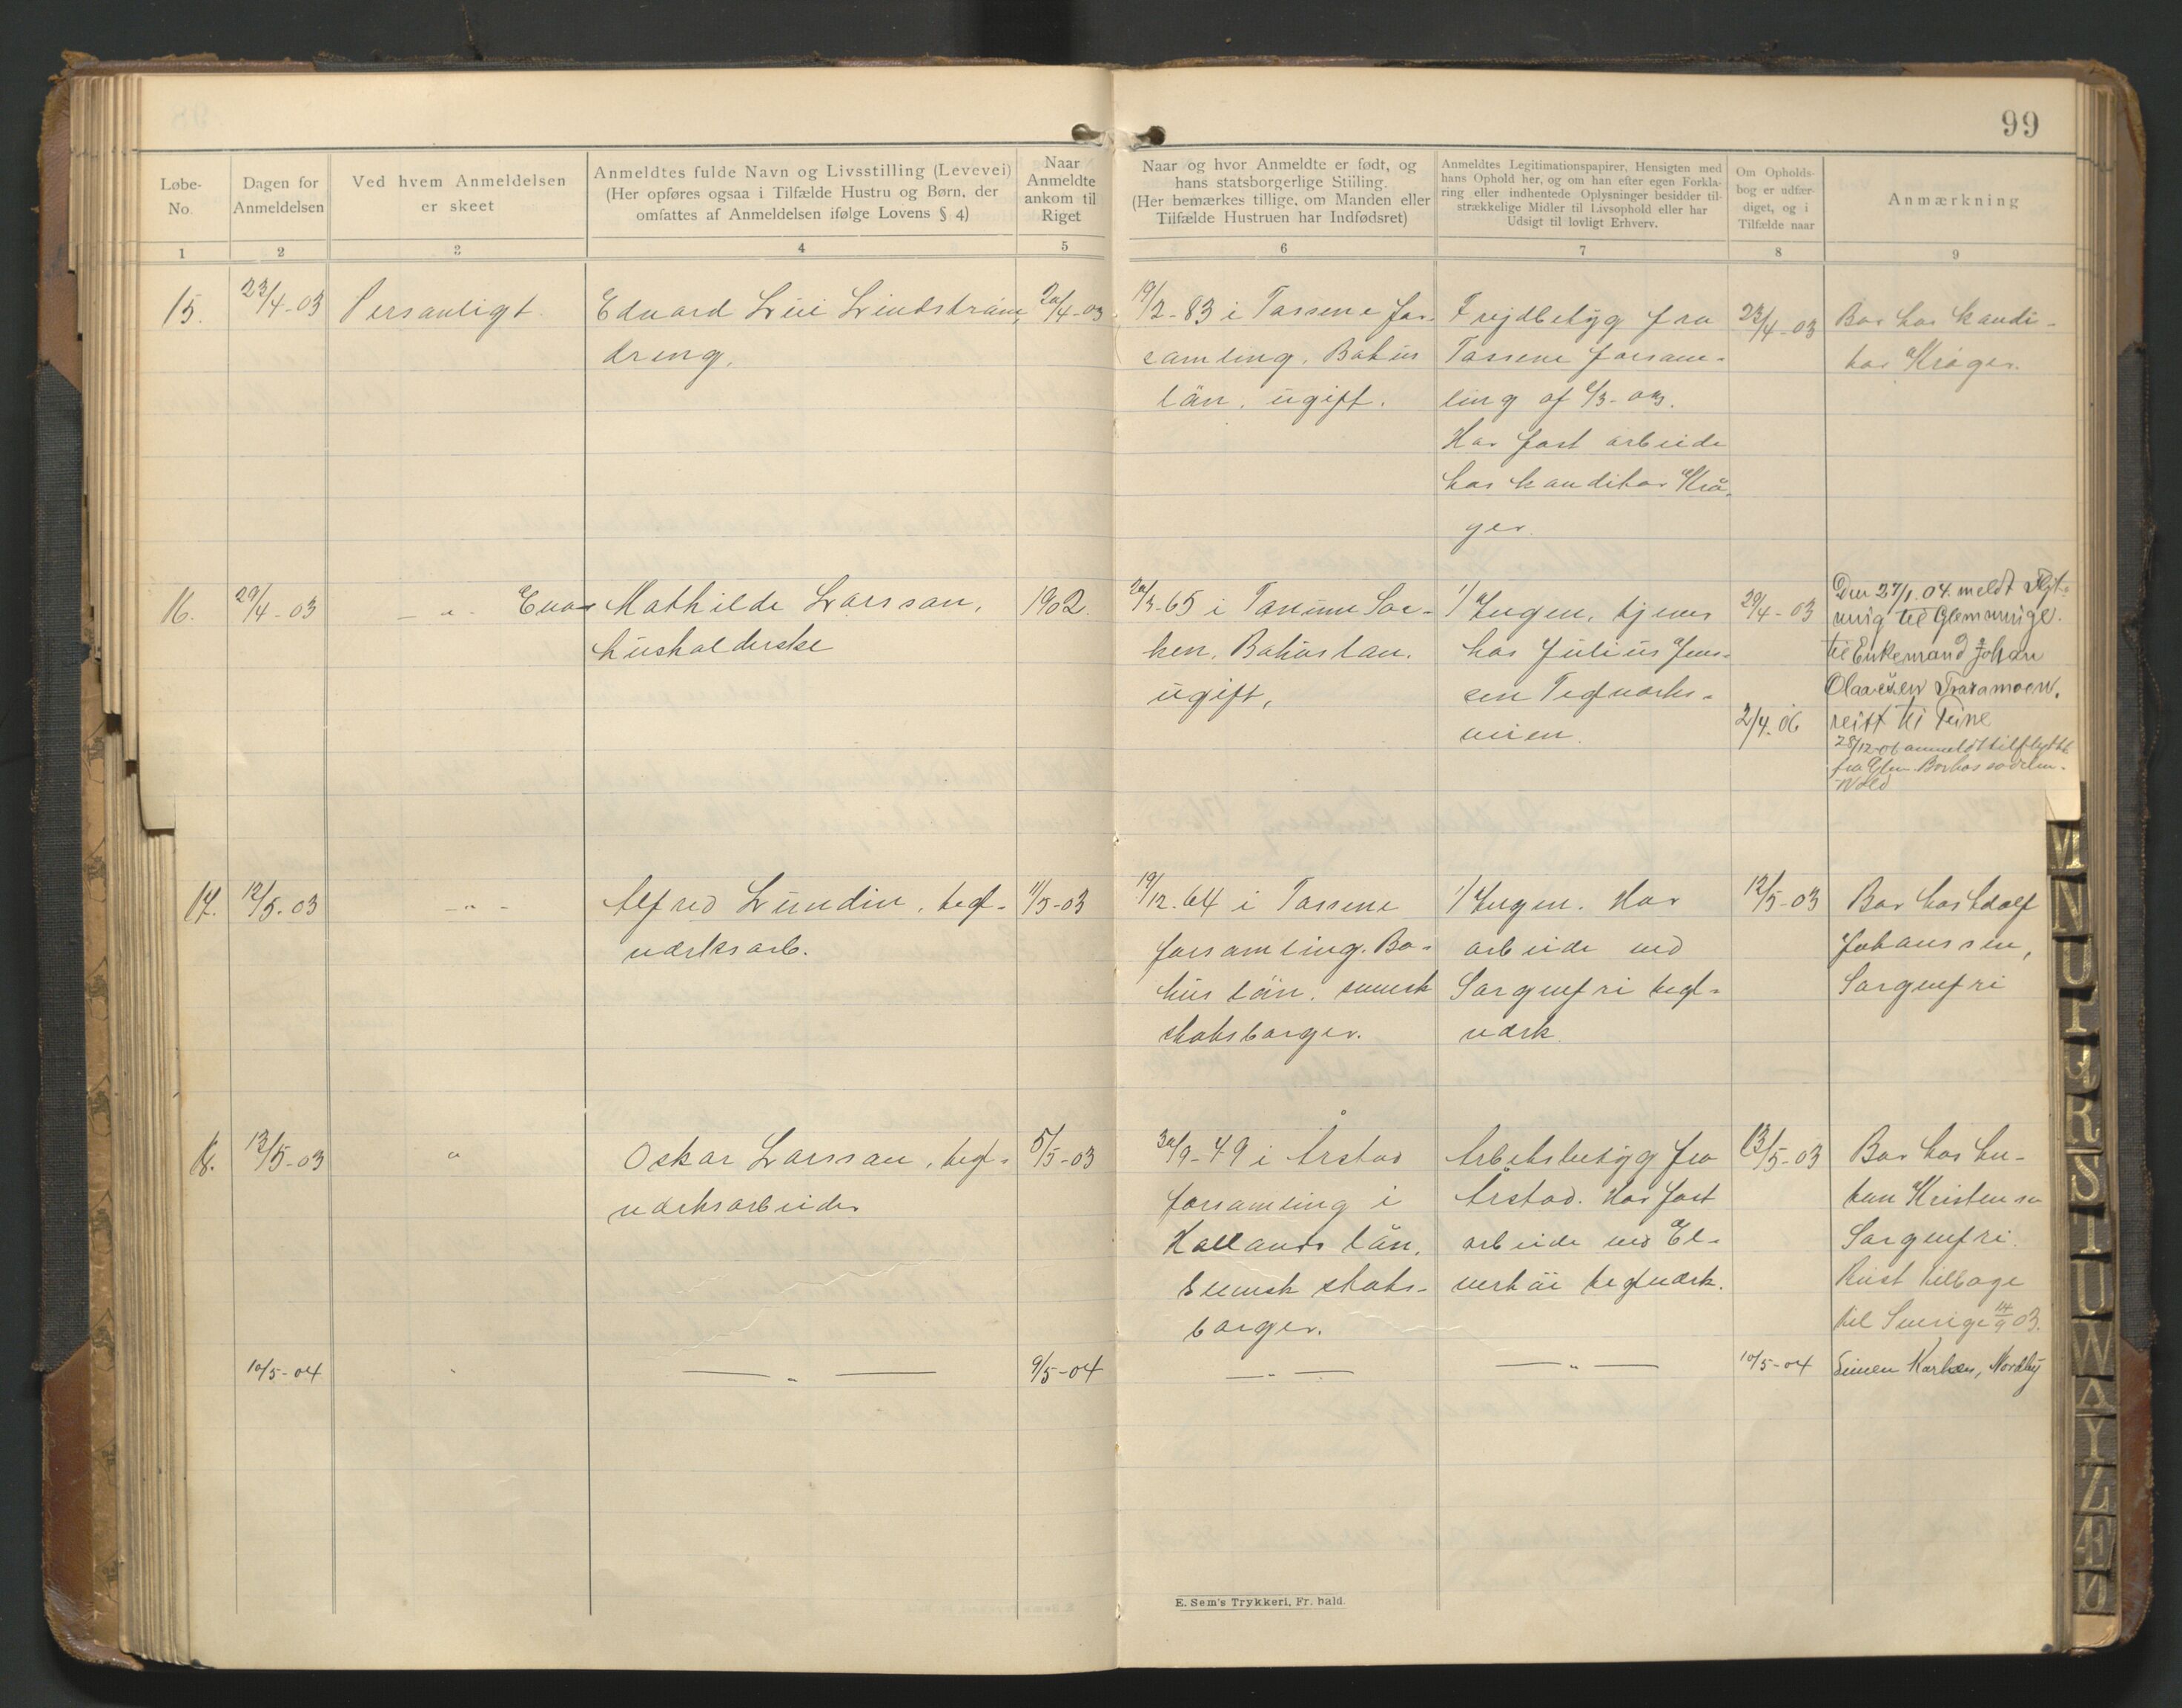 99
Løbe-
No.
Dagen for
Anmeldelsen
Ved hvem Anmeldelsen
er skeet
Anmeldtes fulde Navn og Livsstilling (Levevei)
(Her opføres ogsaa i Tilfælde Hustru og Børn, der
omfattes af Anmeldelsen ifølge Lovens § 4)
Naar
Anmeldte
ankom til
Riget
Naar og hvor Anmeldte er født, og
hans statsborgerlige Stiiling.
(Her bemærkes tillige, om Manden eller
Tilfælde Hustruen har Indfødsret)
Anmeldtes Legitimationspapirer, Hensigten med
hans Ophold her, og om han efter egen Forkla-
ring eller indhentede Oplysninger besidder til-
strækkelige Midler til Livsophold eller har
Udsigt til lovligt Erhverv.
Om Opholds-
bog er udfær-
diget, og i
Tilfælde naar
Anmærkning
1
2
3
4
5
6
7
8
9
15.
23/4-03
Personligt
Edvard Lindström,
dreng.
20/4-03
19/2-83 i Tossene for-
samling, Bohus
län, ugift.
Frejdbetyg fra
Tossene forsam-
ling af
Har fast arbeide
hos konditor Krö-
ger.
23/4-03
Bor hos kondi-
tor Kröger.
16.
29/4-03
— " -
Eva Mathilde Larsson,
husholderske
1902.
i Tanum Soc-
ken, Bohuslän.
ugift,
1/ Ingen, tjener
hos Julius Jens-
sen Teglverks-
veien.
29/4-03
2/4.06
Den 27/1.04. meldt Flyt-
ning til Glemminge.
til Enkemand Johan
Olaussen
reist til
28/12-06 anmeldt tilflyttet
fra Glem. Bor hos
17.
12/5.03
— " -
Alfred Lundin, tegl-
værksarb.
11/5-03
19/12.64 i Tossene
forsamling. Bo-
hus län. svensk
statsborger.
1/ Ingen. Har
arbeide ved
Sorgenfri tegl-
værk.
12/5-03
Bor hos Adolf
Johanssen,
Sorgenfri
18.
13/5-03
"
Oskar Larsson, tegl-
værksarbeider
5/5-03
30/9-49 i Årstad
forsamling i
Hallands län.
Svensk stats-
borger.
Arbetsbetyg fra
Årstad. Har fast
arbeide ved El-
verhöi teglværk.
13/5-03
Bor hos An-
ton Kristensen
Sorgenfri.
Reist tilbage
til Sverige 14/9 03.
10/5-04
"
— " —
9/5-04
— " —
— " —
10/5-04
Simen Karlsen, Nordby
E. Sem's Trykkeri, Fr. hald.
M
N
O
P
Q
R
S
T
U
W
A
Y
Z
Æ
Ø